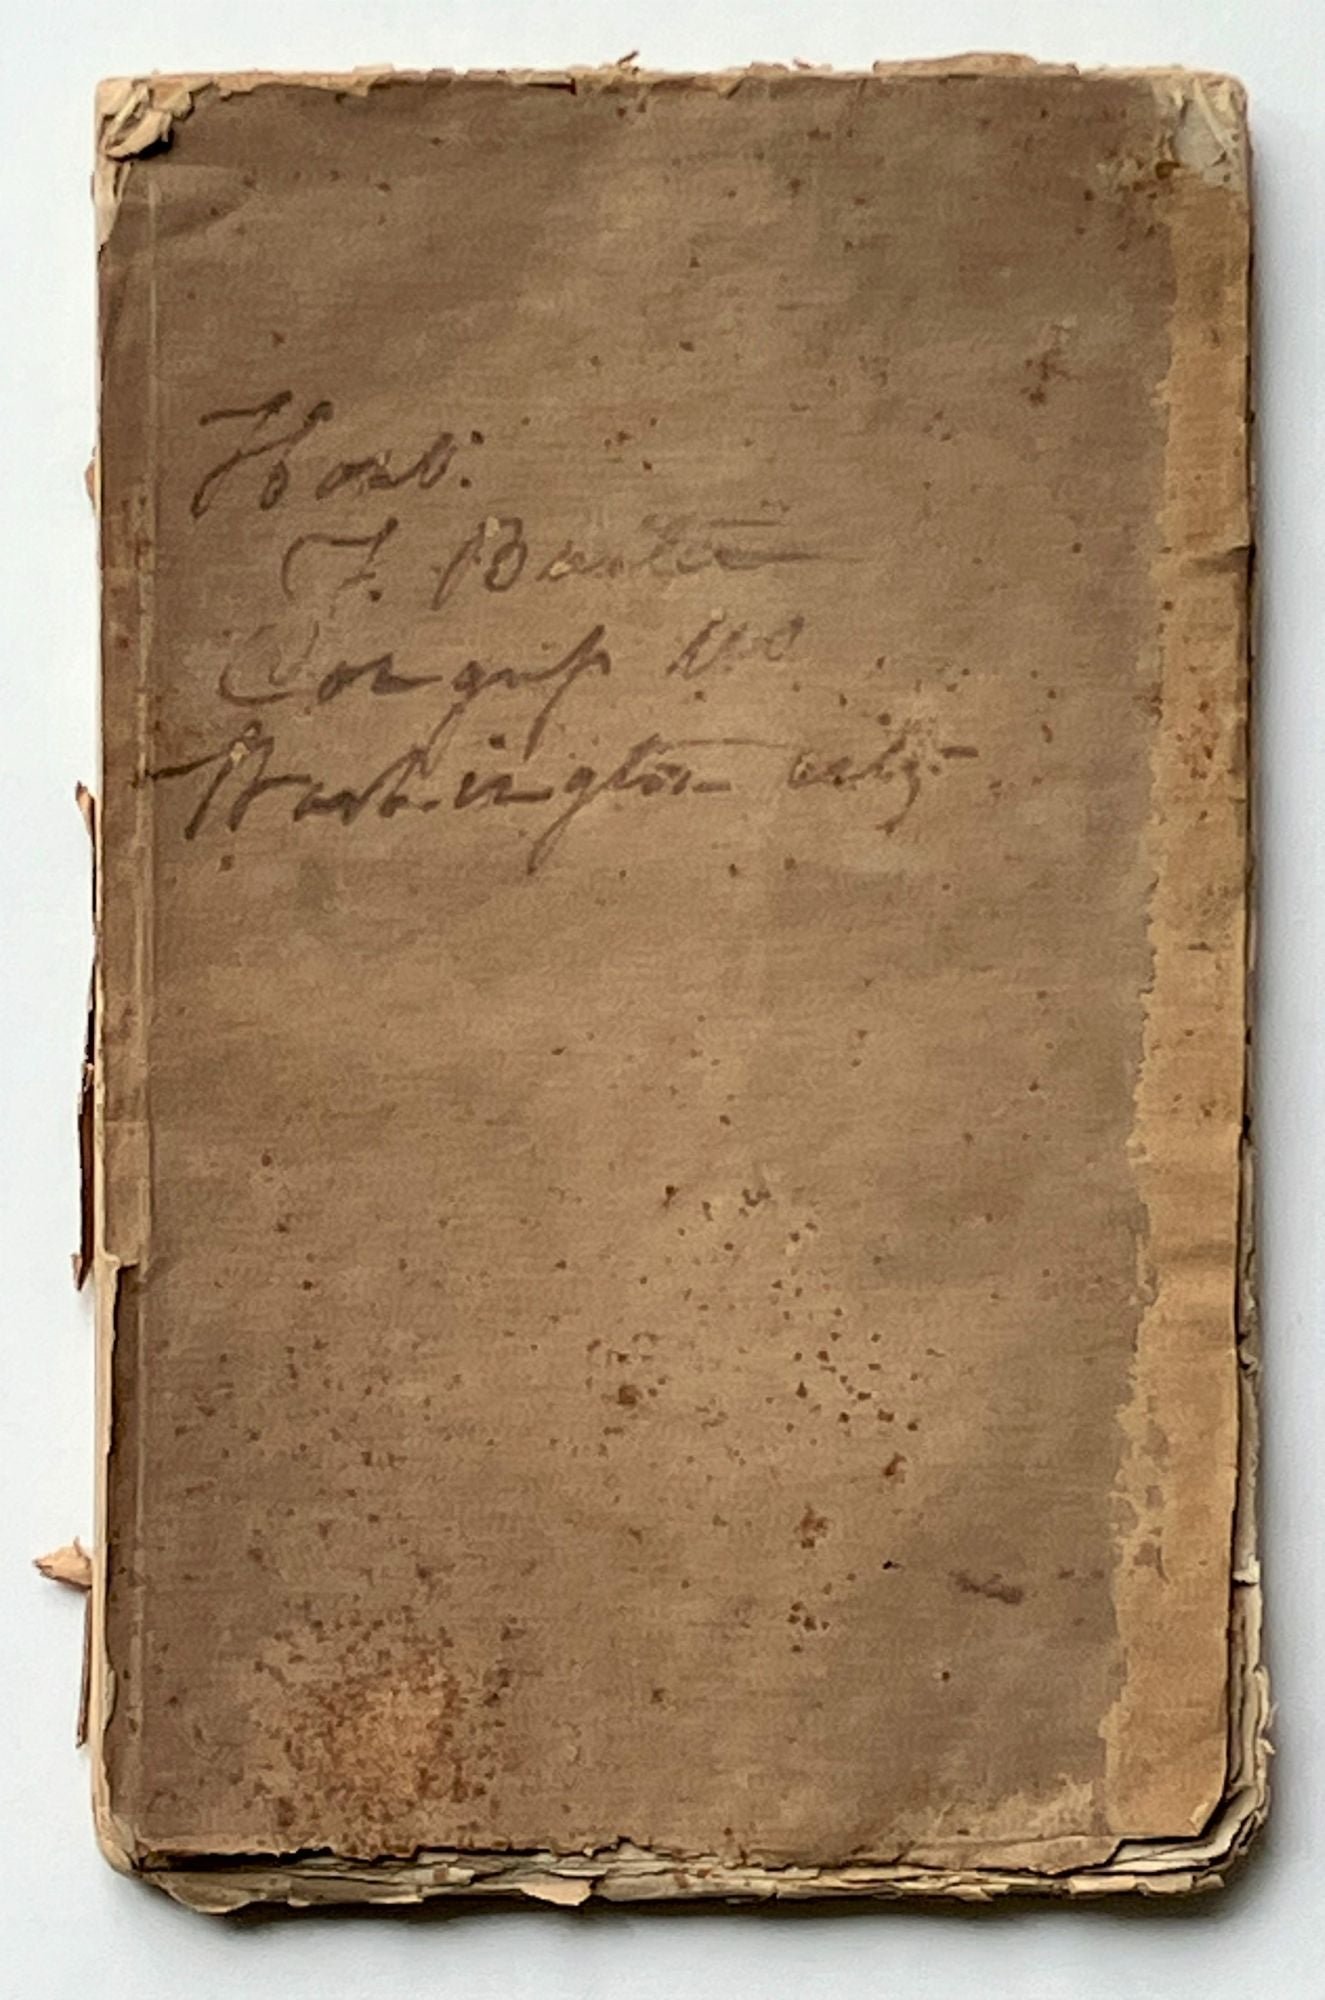 Honb.
F. Baxter
Congress
Washington city